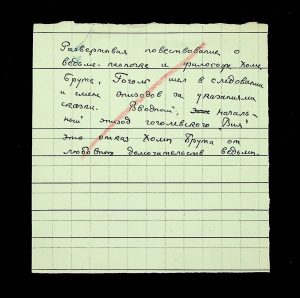 Развертывая повествование о
ведьме-панночке и философе Хоме
Бруте, Гоголь шел в следовании
и смене эпизодов за указаниями
сказки. Вводный, началь-
ный эпизод гоголевского "Вия"
это отказ Хомы Брута от
любовных домогательств ведьмы.